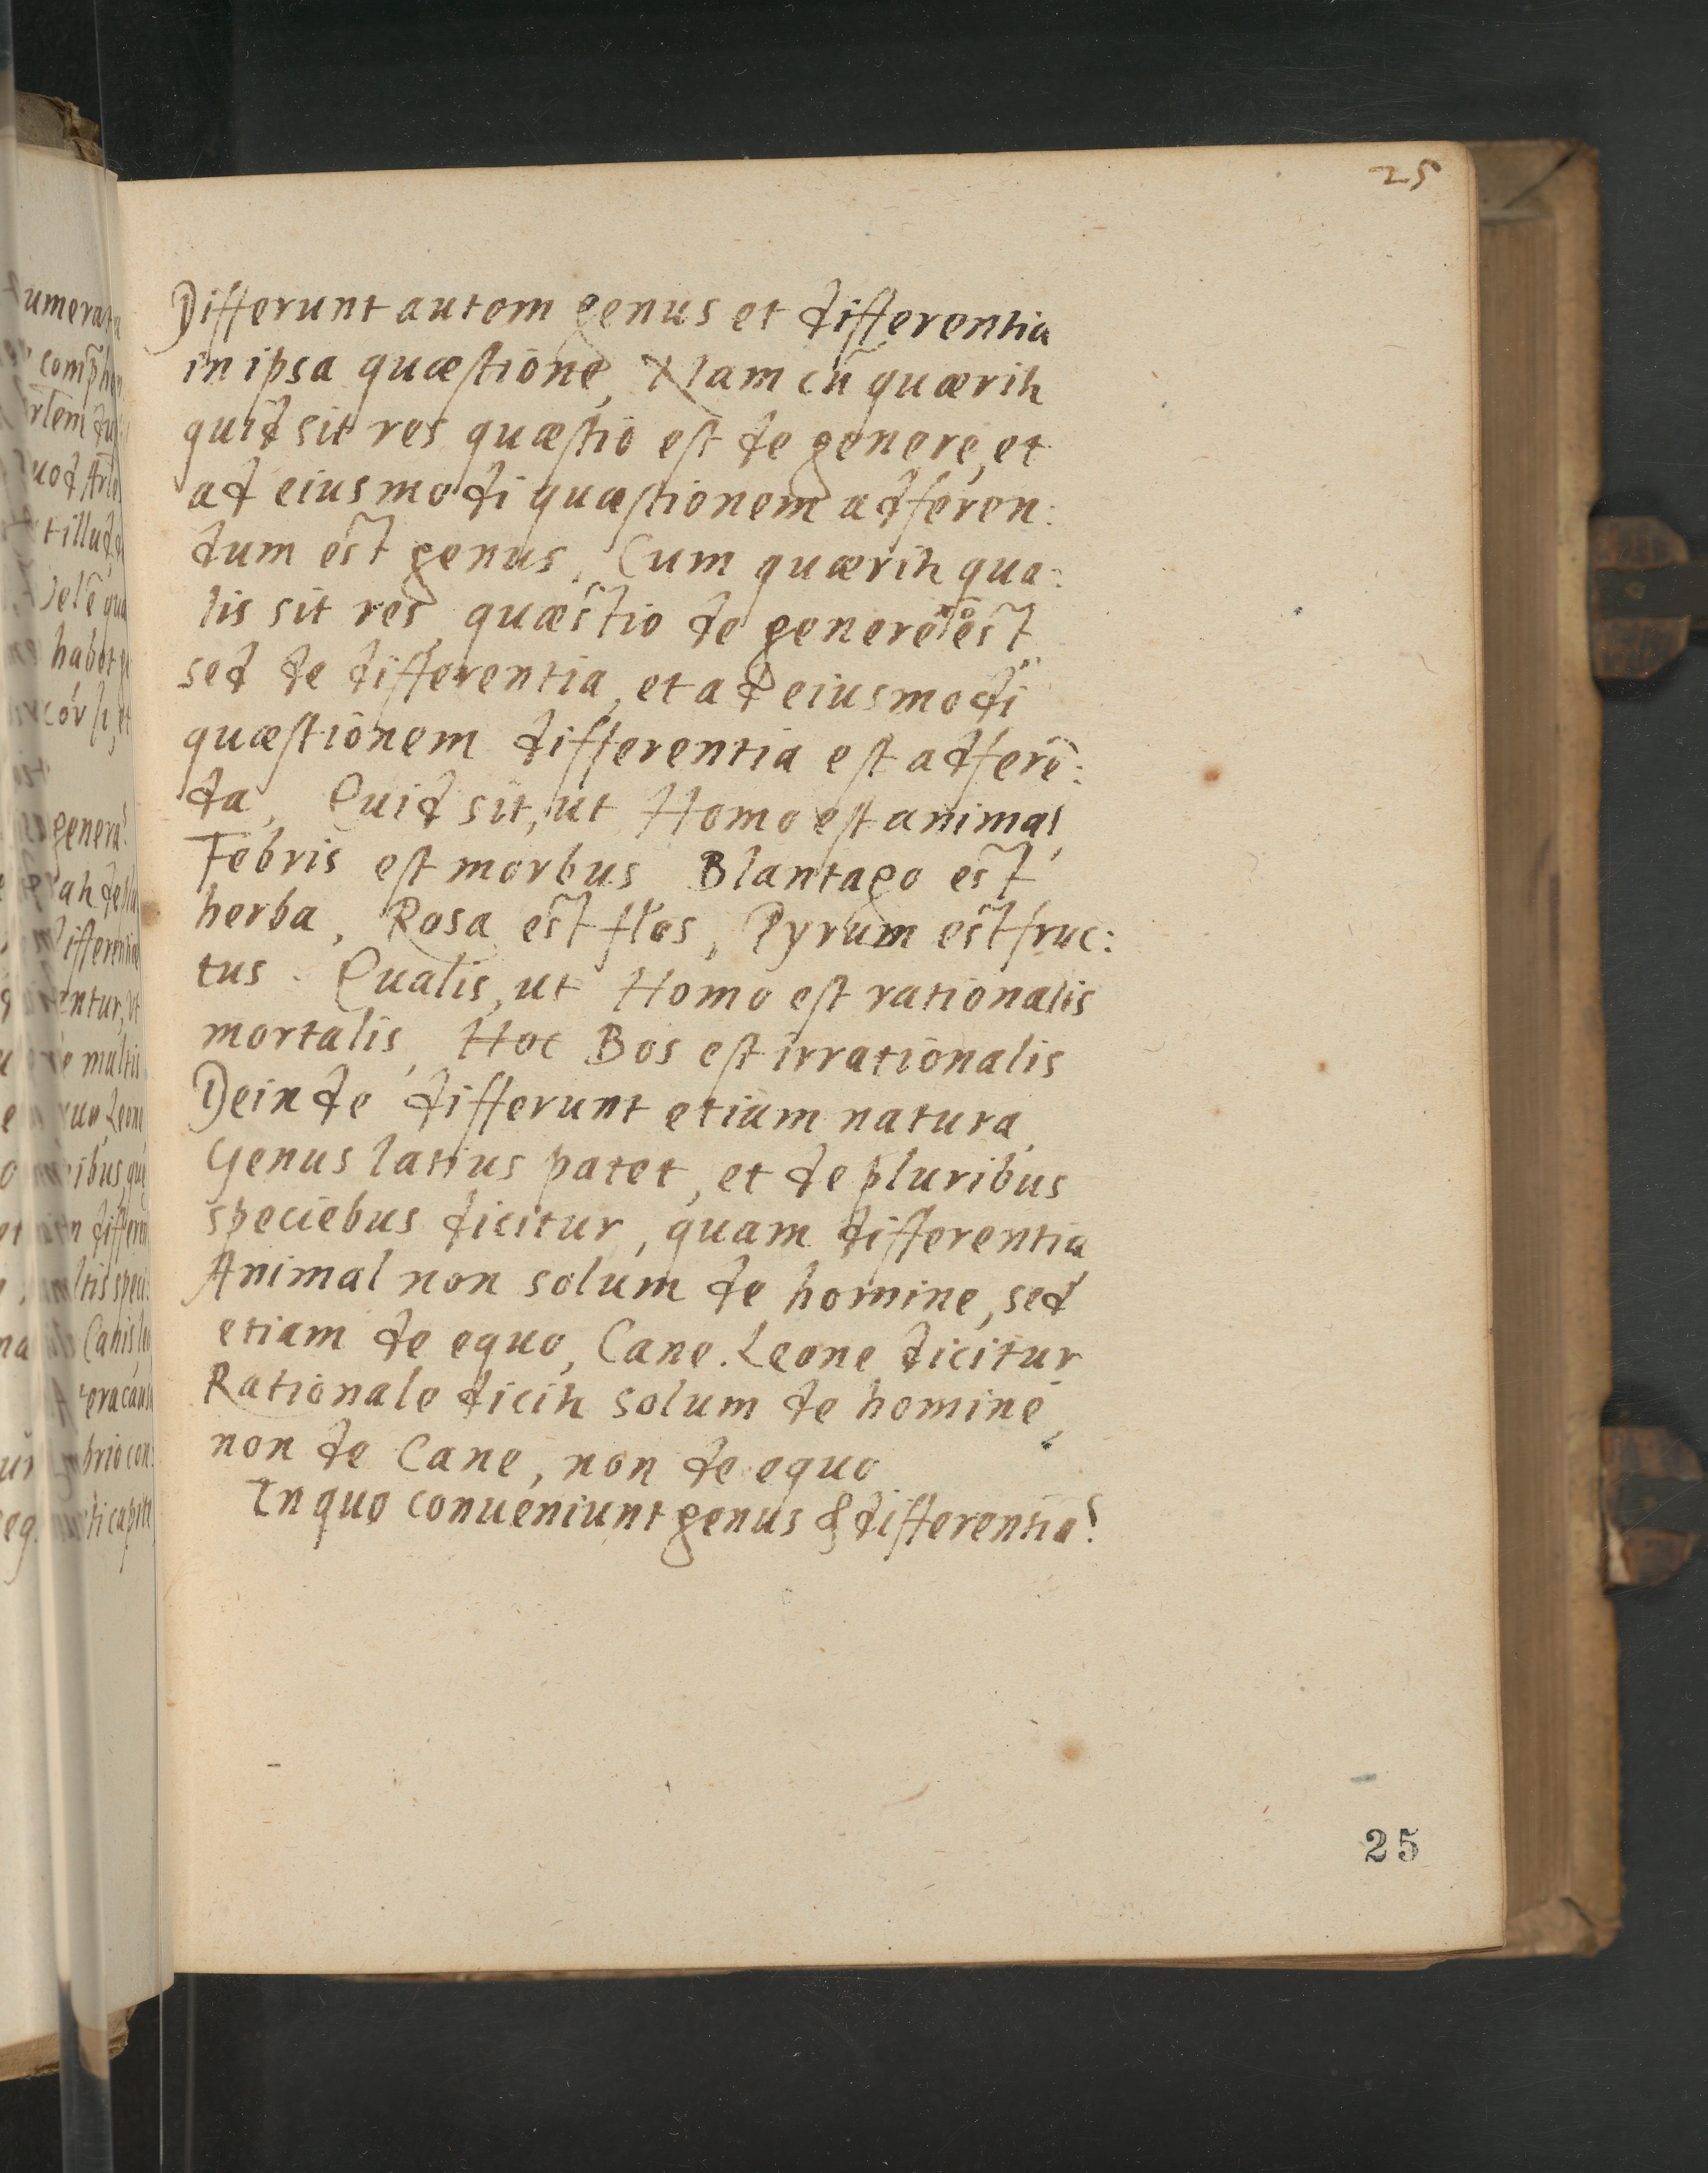 25
Differunt autem genus et differentia
in ipsa quæstione, Nam cū quærih
quid sit res quæstio est de genere, et
ad eiusmodi quæstionem adferen:
dum est genus, Cum quærih qua:
lis sit res quæstio de genere nō est
sed de differentia, et ad eiusmodi
quæstionem differentia est adferē:
da, Quid sit, ut Homo est animal,
Febris est morbus Blantago est
herba, Rosa est flos, Pyrum est fruc:
tus. Qualis, ut Homo est rationalis
mortalis, Hoc Bos est irrationalis
Deinde differunt etiam natura,
Genus latius patet, et de pluribus
speciebus dicitur, quam differentia
Animal non solum de homine, sed
etiam de equo, Cane. Leone dicitur
Rationale dicih solum de homine,
non de Cane, non de equo
In quo conueniunt genus & differentia?
25